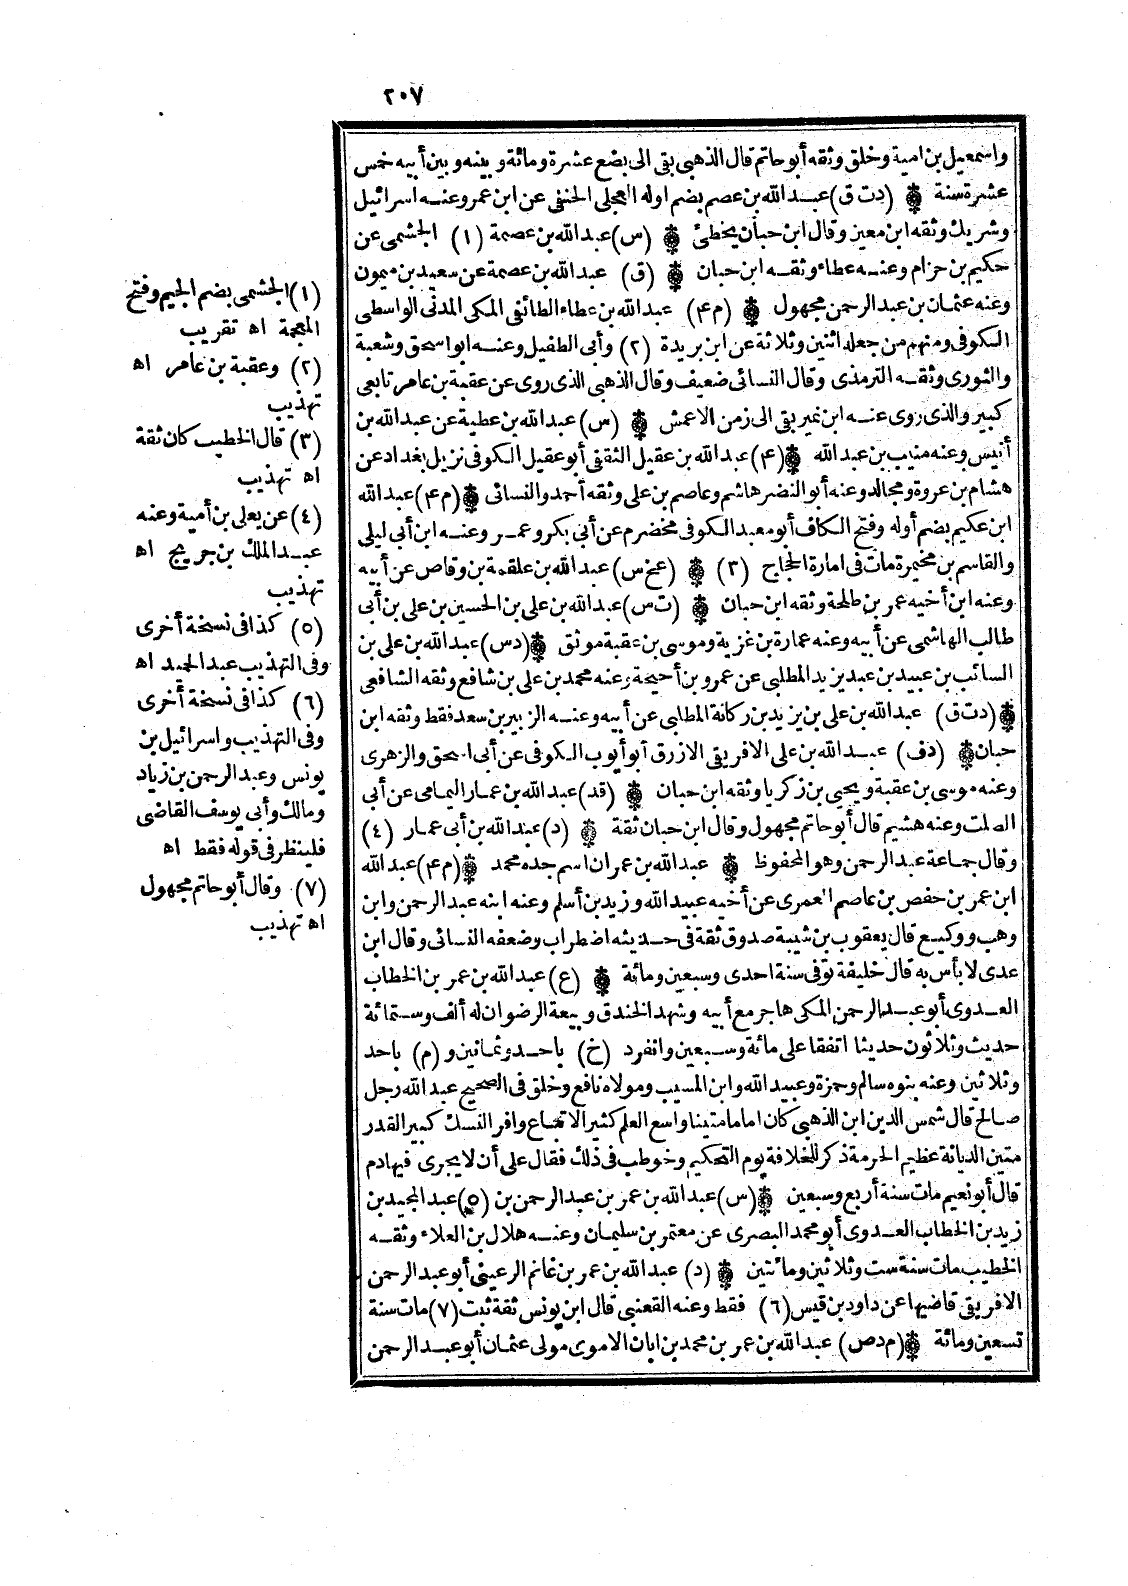 ٢٠٧
واسمعيل بن امية وخلق وثقه أبو حاتم قال الذهبى بقى الى بضع عشرة ومائة وبينه وبين أبيه خمس
عشرة سنة (د ت ق) عبد الله بن عصم بضم اوله العجلى الحنفى عن ابن عمر وعنه اسرائيل
وشريك وثقه ابن معين وقال ابن حبان يخطئ (س) عبد الله بن عصمة (١) الجشمى عن
حكيم بن حزام وعنه عطاء وثقه ابن حبان (ق) عبد الله بن عصمة عن سعيد بن ميمون
وعنه عثمان بن عبد الرحمن مجهول (م ٤) عبد الله بن عطاء الطائفى المكى المدنى الواسطى
الكوفى ومنهم من جعله اثنين وثلاثة عن ابن بريدة (٢) وأبى الطفيل وعنه ابو اسحق وشعبة
والثورى وثقه الترمذى وقال النسائى ضعيف وقال الذهبى الذى روى عن عقبة بن عامر تابعى
كبير والذى روى عنه ابن نمير بقى الى زمن الاعمش (س) عبد الله بن عطية عن عبد الله بن
أنيس وعنه منيب بن عبد الله (٤) عبد الله بن عقيل الثقفى أبو عقيل الكوفى نزيل بغداد عن
هشام بن عروة ومجالد وعنه أبو النضر هاشم وعاصم بن على وثقه أحمد والنسائى (م ٤) عبد الله
ابن عكيم بضم أوله وفتح الكاف أبو معبد الكوفى مخضرم عن أبى بكر وعمر وعنه ابن أبى ليلى
والقاسم بن مخيمرة مات فى امارة الحجاج (٣) (عخ س) عبد الله بن علقمة بن وقاص عن أبيه
وعنه ابن أخيه عمر بن طلحة وثقه ابن حبان (ت س) عبد الله بن على بن الحسين بن على بن أبى
طالب الهاشمى عن أبيه وعنه عمارة بن غزية وموسى بن عقبة موثق (د س) عبد الله بن على بن
السائب بن عبيد بن عبد يزيد المطلبى عن عمرو بن أحيحة وعنه محمد بن على بن شافع وثقه الشافعى
(د ت ق) عبد الله بن على بن يزيد بن ركانة المطلبى عن أبيه وعنه الزبير بن سعد فقط وثقه ابن
حبان (د ق) عبد الله بن على الافريقى الازرق أبو أيوب الكوفى عن أبى اسحق والزهرى
وعنه موسى بن عقبة ويحيى بن زكريا وثقه ابن حبان (قد) عبد الله بن عمار اليمامى عن أبى
الصلت وعنه هشيم قال أبو حاتم مجهول وقال ابن حبان ثقة (د) عبد الله بن أبى عمار (٤)
وقال جماعة عبد الرحمن وهو المحفوظ عبد الله بن عمران اسم جده محمد (م ٤) عبد الله
ابن عمر بن حفص بن عاصم العمرى عن أخيه عبيد الله وزيد بن أسلم وعنه ابنه عبد الرحمن وابن
وهب ووكيع قال يعقوب بن شيبة صدوق ثقة فى حديثه اضطراب وضعفه النسائى وقال ابن
عدى لا بأس به قال خليفة توفى سنة احدى وسبعين ومائة (ع) عبد الله بن عمر بن الخطاب
العدوى أبو عبد الرحمن المكى هاجر مع أبيه وشهد الخندق وبيعة الرضوان له ألف وستمائة
حديث وثلاثون حديثا اتفقا على مائة وسبعين وانفرد (خ) باحد وثمانين و (م) باحد
وثلاثين وعنه بنوه سالم وحمزة وعبيد الله وابن المسيب ومولاه نافع وخلق فى الصحيح عبد الله رجل
صالح قال شمس الدين ابن الذهبى كان اماما متينا واسع العلم كثير الاتباع وافر النسك كبير القدر
متين الديانة عظيم الحرمة ذكر للخلافة يوم التحكيم وخوطب فى ذلك فقال على أن لا يجرى فيها دم
قال أبو نعيم مات سنة أربع وسبعين (س) عبد الله بن عمر بن عبد الرحمن بن (٥) عبد المجيد بن
زيد بن الخطاب العدوى أبو محمد البصرى عن معتمر بن سليمان وعنه هلال بن العلاء وثقه
الخطيب مات سنة ست وثلاثين ومائتين (د) عبد الله بن عمر بن غانم الرعينى أبو عبد الرحمن
الافريقى قاضيها عن داود بن قيس (٦) فقط وعنه القعنبى قال ابن يونس ثقة ثبت (٧) مات سنة
تسعين ومائة (م د ص) عبد الله بن عمر بن محمد بن ابان الاموى مولى عثمان أبو عبد الرحمن
(١) الجشمى بضم الجيم وفتح
المعجمة اه تقريب
(٢) وعقبة بن عامر اه
تهذيب
(٣) قال الخطيب كان ثقة
اه تهذيب
(٤) عن يعلى بن أمية وعنه
عبد الملك بن جريج اه
تهذيب
(٥) كذا فى نسخة أخرى
وفى التهذيب عبد الحميد اه
(٦) كذا فى نسخة أخرى
وفى التهذيب واسرائيل بن
يونس وعبد الرحمن بن زياد
ومالك وأبى يوسف القاضى
فلينظر فى قوله فقط اه
(٧) وقال أبو حاتم مجهول
اه تهذيب